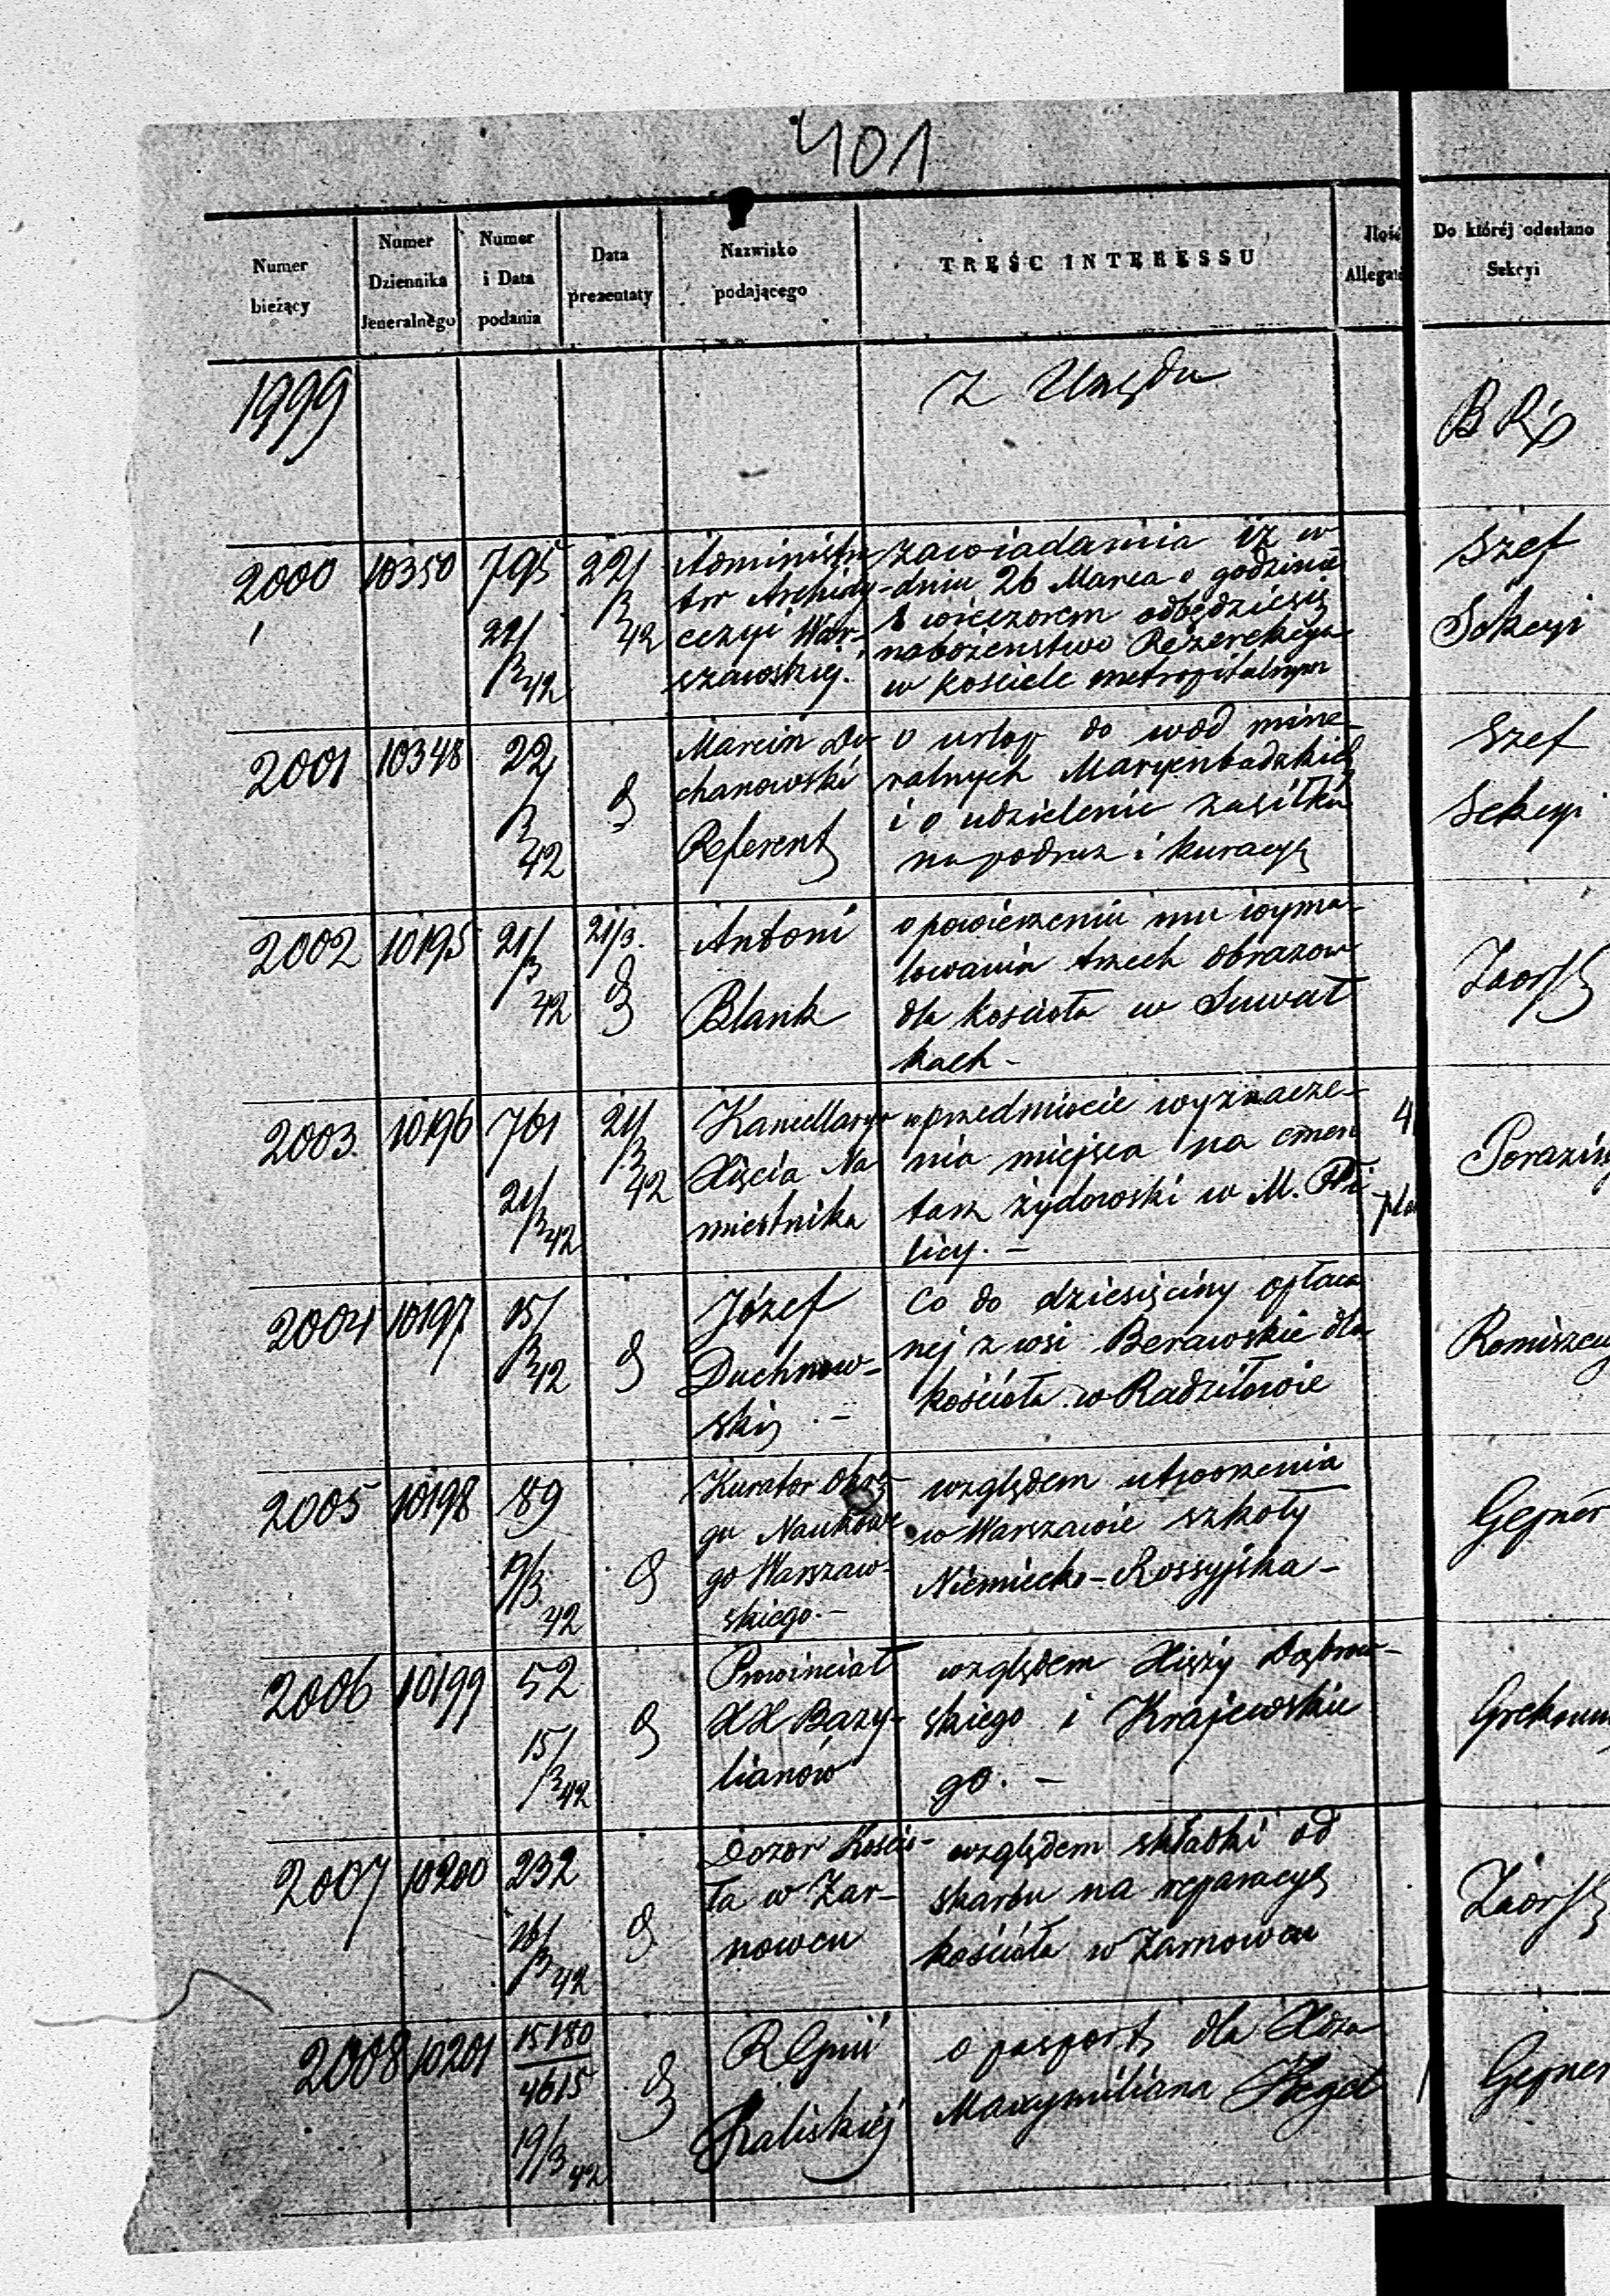 401
Numer bieżący
Numer Dziennika Jeneralnego
Numer i Data podania
Data prezentaty
Nazwisko podającego
TREŚĆ INTERESSU
Ilość Allegat
Do któréj odesłano Sekcyi
1999
Z Urzędu
2000
10350
795
22/3 42
22/3 42
Administra
tor Archidy-
cezyi War-
szawskiej.
zawiadamia iż w
dniu 26 Marca o godzinie
8 wieczorem odbędzie się
nabożeństwo Rezerekcya
w kościele metropitalnym
Szef
Sekcyi
2001
10348
22/3 42
Marcin Du
chanowski
Referent
o urlop do wód mine-
ralnych Maryenbadzkich
i o udzielenie zasiłku
na podruz i kuracyą
Szef
Sekcyi
2002
10195
21/3 42
21/3.
Antoni
Blank
o powierzeniu mu wyma-
lowania trzech obrazow
dla kościoła w Suwał
kach -
2003.
10196
761
21/3 42
21/3 42
Kancellarya
Xięcia Na
miestnika
w przedmiocie wyznacze-
nia miejsca na cmen
tarz żydowski w M. Pi
licy. -
4
2004
10197
15/3 42
Józef
Duchnow-
ski. -
Co do dziesięciny opłaca
nej z wsi Berawskie dla
kościoła w Radziłowie
2005
10198
89
19/3 42
Kurator Okrę-
gu Naukowe
go Warszaw-
skiego. -
względem utworzenia
w Warszawie szkoły
Niemiecko-Rossyjska -
Gepner
2006
10199
52
15/3 42
Prowinciał
XX Bazy-
lianów
względem Xięży Dąbrow-
skiego i Krajewskie
go. -
2007
10200
232
16/3 42
Dozor Kościo-
ła w Żar-
nowcu
względem składki od
skarbu na reparacyą
kościoła w Żarnowcu
2008
10201
15180
4615
19/3 42
Kaliskiéj
o pasport dla Xdza
Maxymiliana Hegel
1
Gepner